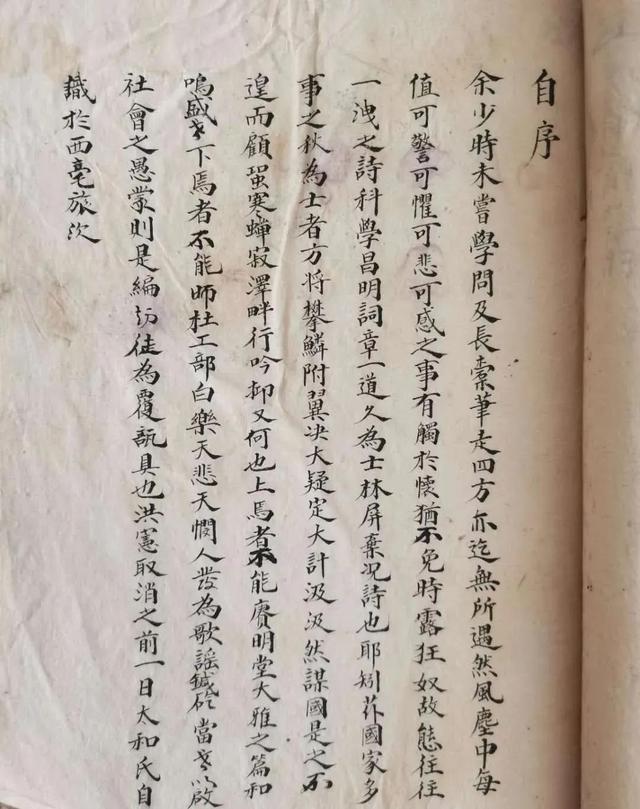 自序
余少時未嘗學問及長橐筆走四方亦迄無所遇然風塵中每
值可警可懼可悲可感之事有觸於懷猶不免時露狂奴故態往往
一洩之詩科學昌明詞章一道久為士林屏棄况詩也耶矧茲國家多
事之秋為士者方將攀鱗附翼决大疑定大計汲汲然謀國是之不
遑而顧蛩寒蟬寂澤畔行吟抑又何也上焉者不能賡明堂大雅之篇和
鳴盛世下焉者不能師杜工部白樂天悲天憫人發為歌謠鍼砭當世以啟
社會之愚蒙則是編訪徒為覆瓿具也洪憲取消之前一日太和氏自
識於西亳旅次